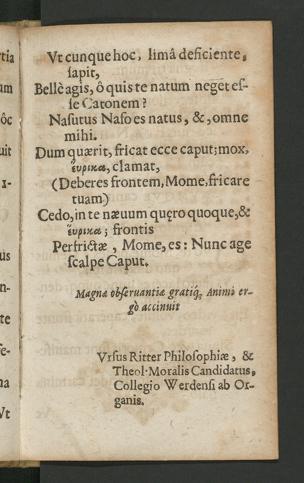 Vt cunque hoc, limâ deficiente,
sapit,
Bellè agis, ô quis te natum neget es-
se Catonem?
Nasutus Naso es natus, &, omne
mihi.
Dum quærit, fricat ecce caput; mox,
ἕυρικα, clamat,
(Deberes frontem, Mome, fricare
tuam)
Cedo, in te næuum quęro quoque, &
ἕυρικα; frontis
Perfrictæ, Mome, es: Nunc age
scalpe Caput.
Magnæ observantiæ gratiq́, Animi er-
gò accinuit
Vrsus Ritter Philosophiæ, &
Theol. Moralis Candidatus,
Collegio Werdensi ab Or-
ganis.